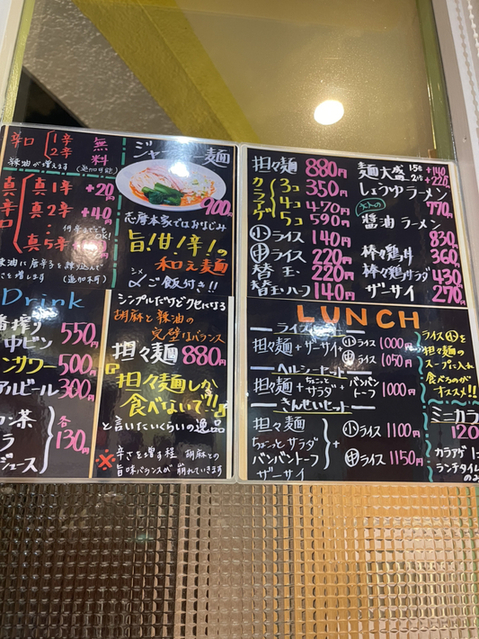 辛口 1辛 2辛 無料
辣油が増えます(追加可能)
真辛口
真1辛 +20円
真2辛 +40円
真5辛
ジャージャー麺
900円
志磨本家ではおなじみ
旨!甘!辛!の
和え麺
〆ご飯付き!!
Drink
中ビン 550円
ンサワー 500円
アルビール 300円
ン茶
ラ
ジュース
各130円
シンプルだけどクセになる
胡麻と辣油の
完璧なバランス
担々麺 880円
『担々麺しか
食べないで!!』
と言いたいくらいの逸品
※辛さを増す程 胡麻との
旨味バランスが崩れていきます
担々麺 880円
カラアゲ
3コ 350円
4コ 470円
5コ 590円
小ライス 140円
中ライス 220円
替玉 220円
替玉・ハーフ 140円
麺大盛
しょうゆラーメン 770円
醤油ラーメン 830円
棒々鶏丼 360円
棒々鶏サラダ 430円
ザーサイ 270円
LUNCH
担々麺+ザーサイ
小ライス 1000円
中ライス 1050円
ヘルシーセット
担々麺+ちょこっとサラダ+バンバントーフ 1000円
さんせいセット
担々麺
ちょこっとサラダ
バンバントーフ
ザーサイ
+
小ライス 1100円
中ライス 1150円
ライス小を
担々麺の
スープに入れて
食べるのが
オススメ!!
ミニカラ
120
カラアゲ
ランチタイム
のみ